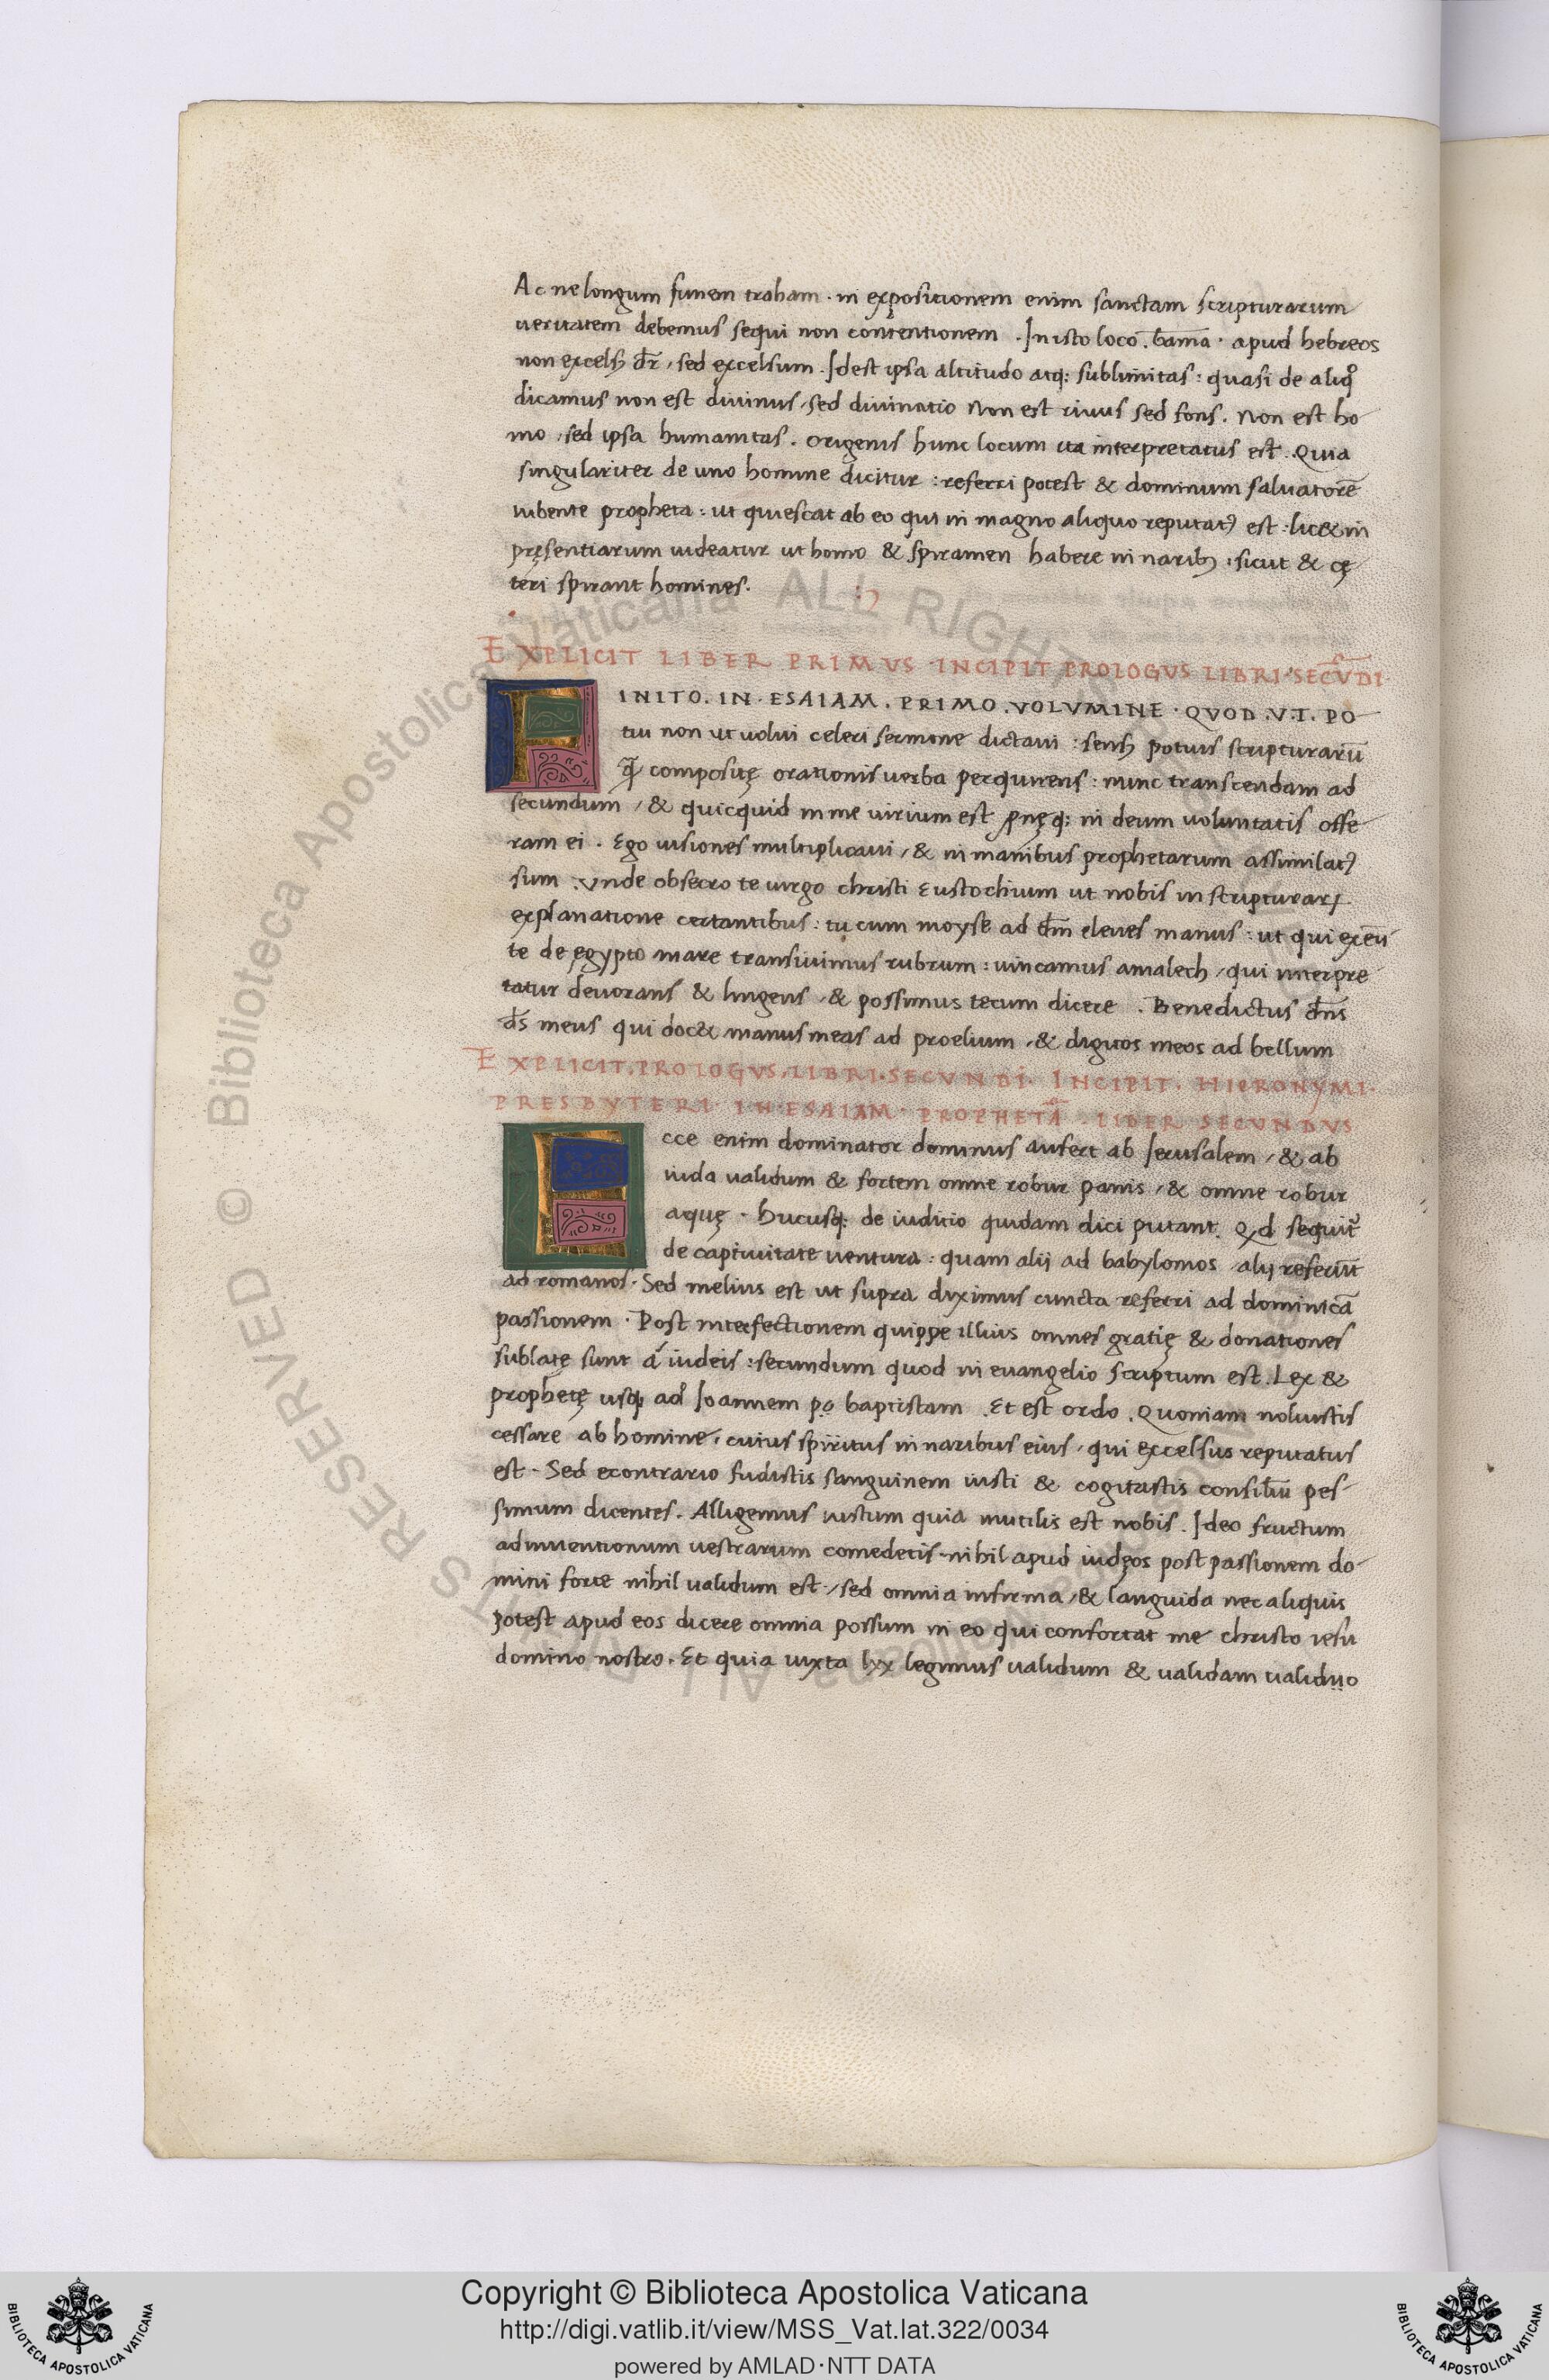 Ac ne longum funem traham · in expositionem enim sanctam scripturarum
ueritatem debemus sequi non contentionem . In isto loco . bama̅ · apud hebreos
non excelsꝫ dr̅ , sed excelsum . Idest ipsa altitudo atq; sublimitas : quasi de aliqͦ
dicamus non est diuinus , sed diuinatio Non est riuus sed fons . Non est ho
mo , sed ipsa humanitas . Origenis hunc locum ita interpretatus est . Quia
singulariter de uno homine dicitur : referri potest & dominum saluatore̅
iubente propheta : ut quiescat ab eo qui in magno aliquo reputatꝰ est : lic& in
pręsentiarum uideatur ut homo & spiramen habere in naribꝫ : sicut & cę
teri spirant homines .
EXPLICIT LIBER PRIMVS INCIPIT PROLOGVS LIBRI SECV̅DI ·
FINITO . IN · ESAIAM . PRIMO . VOLVMINE · QVOD . V.T. PO
tui non ut uolui celeri sermone dictaui : sensꝫ potuis scripturaru̅
q̅ compositę orationis uerba perquirens : nunc transcendam ad
secundum , & quicquid in me uirium est ꝓnęq; in deum uoluntatis offe
ram ei . Ego uisiones multiplicaui , & in manibus prophetarum assimilatꝰ
sum . Vnde obsecro te uirgo christi Eustochium ut nobis in scripturarꝝ
explanatione certantibus : tu cum moyse ad dn̅m eleues manus : ut qui exeu̅
te de ęgypto mare transiuimus rubrum : uincamus amalech , qui interpre
tatur deuorans & lingens , & possimus tecum dicere . Benedictus dn̅s
ds̅ meus qui doc& manus meas ad proelium , & digitos meos ad bellum
EXPLICIT . PROLOGVS , LIBRI · SECVNDI · INCIPIT . HIERONYMI ·
PRESBYTERI · IN · ESAIAM · PROPHETA̅ . LIBER SECVNDVS
Ecce enim dominator dominus aufert ab Ierusalem , & ab
iuda ualidum & fortem omne robur panis , & omne robur
aquę · Hucusq; de iudicio quidam dici putant . Qd sequit᷑
de captiuitate uentura : quam alij ad babylonios , alij referu̅t
ad romanos . Sed melius est ut supra diximus cuncta referri ad dominica̅
passionem · Post interfectionem quippe illius omnes gratię & donationes
sublatę sunt á iudeis : secundum quod in euangelio scriptum est . Lex &
prophetę usq; ad Ioannem po baptistam . Et est ordo . Quoniam noluistis
cessare ab homine , cuius spiritus in naribus eius , qui excelsus reputatus
est · Sed econtrario fudistis sanguinem iusti & cogitastis consiliu̅ pes
simum dicentes . Alligemus iustum quia inutilis est nobis . Ideo fructum
adinuentionum uestrarum comedetis · nihil apud iudęos post passionem do
mini forte nihil ualidum est , sed omnia infirma , & languida nec aliquis
potest apud eos dicere omnia possum in eo qui confortat me christo iesu
domino nostro . Et quia iuxta lxx legimus ualidum & ualidam ualiduo
© Biblioteca Apostolica Vaticana ALL RIGHTS RESERVED
Copyright © Biblioteca Apostolica Vaticana
http://digi.vatlib.it/view/MSS_Vat.lat.322/0034
powered by AMLAD·NTT DATA
BIBLIOTECA APOSTOLICA VATICANA
BIBLIOTECA APOSTOLICA VATICANA